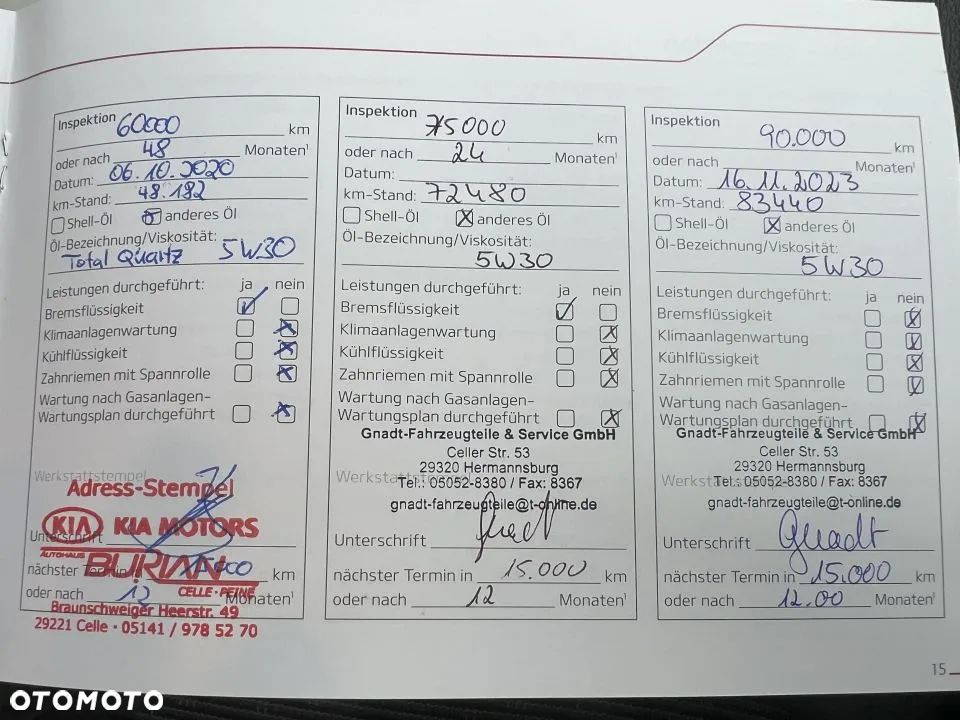 Inspektion 60000 km
oder nach 48 Monaten¹
Datum: 06.10.2020
km-Stand: 48.182
Shell-Öl anderes Öl
Öl-Bezeichnung/Viskosität:
Total Quartz 5W30
Leistungen durchgeführt: ja nein
Bremsflüssigkeit
Klimaanlagenwartung
Kühlflüssigkeit
Zahnriemen mit Spannrolle
Wartung nach Gasanlagen-
Wartungsplan durchgeführt
Werkstattstempel
Adress-Stempel
KIA KIA MOTORS
Unterschrift
AUTOHAUS
BURIAN
CELLE · PEINE
nächster Termin in 15000 km
oder nach 12 Monaten¹
Braunschweiger Heerstr. 49
29221 Celle · 05141 / 978 52 70
Inspektion 75000 km
oder nach 24 Monaten¹
Datum:
km-Stand: 72480
Shell-Öl anderes Öl
Öl-Bezeichnung/Viskosität:
5W30
Leistungen durchgeführt: ja nein
Bremsflüssigkeit
Klimaanlagenwartung
Kühlflüssigkeit
Zahnriemen mit Spannrolle
Wartung nach Gasanlagen-
Wartungsplan durchgeführt
Gnadt-Fahrzeugteile & Service GmbH
Celler Str. 53
29320 Hermannsburg
Werkstattstempel
Tel.: 05052-8380 / Fax: 8367
gnadt-fahrzeugteile@t-online.de
Unterschrift Gnadt
nächster Termin in 15.000 km
oder nach 12 Monaten¹
Inspektion 90.000 km
oder nach Monaten¹
Datum: 16.11.2023
km-Stand: 83440
Shell-Öl anderes Öl
Öl-Bezeichnung/Viskosität:
5W30
Leistungen durchgeführt: ja nein
Bremsflüssigkeit
Klimaanlagenwartung
Kühlflüssigkeit
Zahnriemen mit Spannrolle
Wartung nach Gasanlagen-
Wartungsplan durchgeführt
Gnadt-Fahrzeugteile & Service GmbH
Celler Str. 53
29320 Hermannsburg
Werkstattstempel
Tel.: 05052-8380 / Fax: 8367
gnadt-fahrzeugteile@t-online.de
Unterschrift Gnadt
nächster Termin in 15.000 km
oder nach 12.00 Monaten¹
15
OTOMOTO